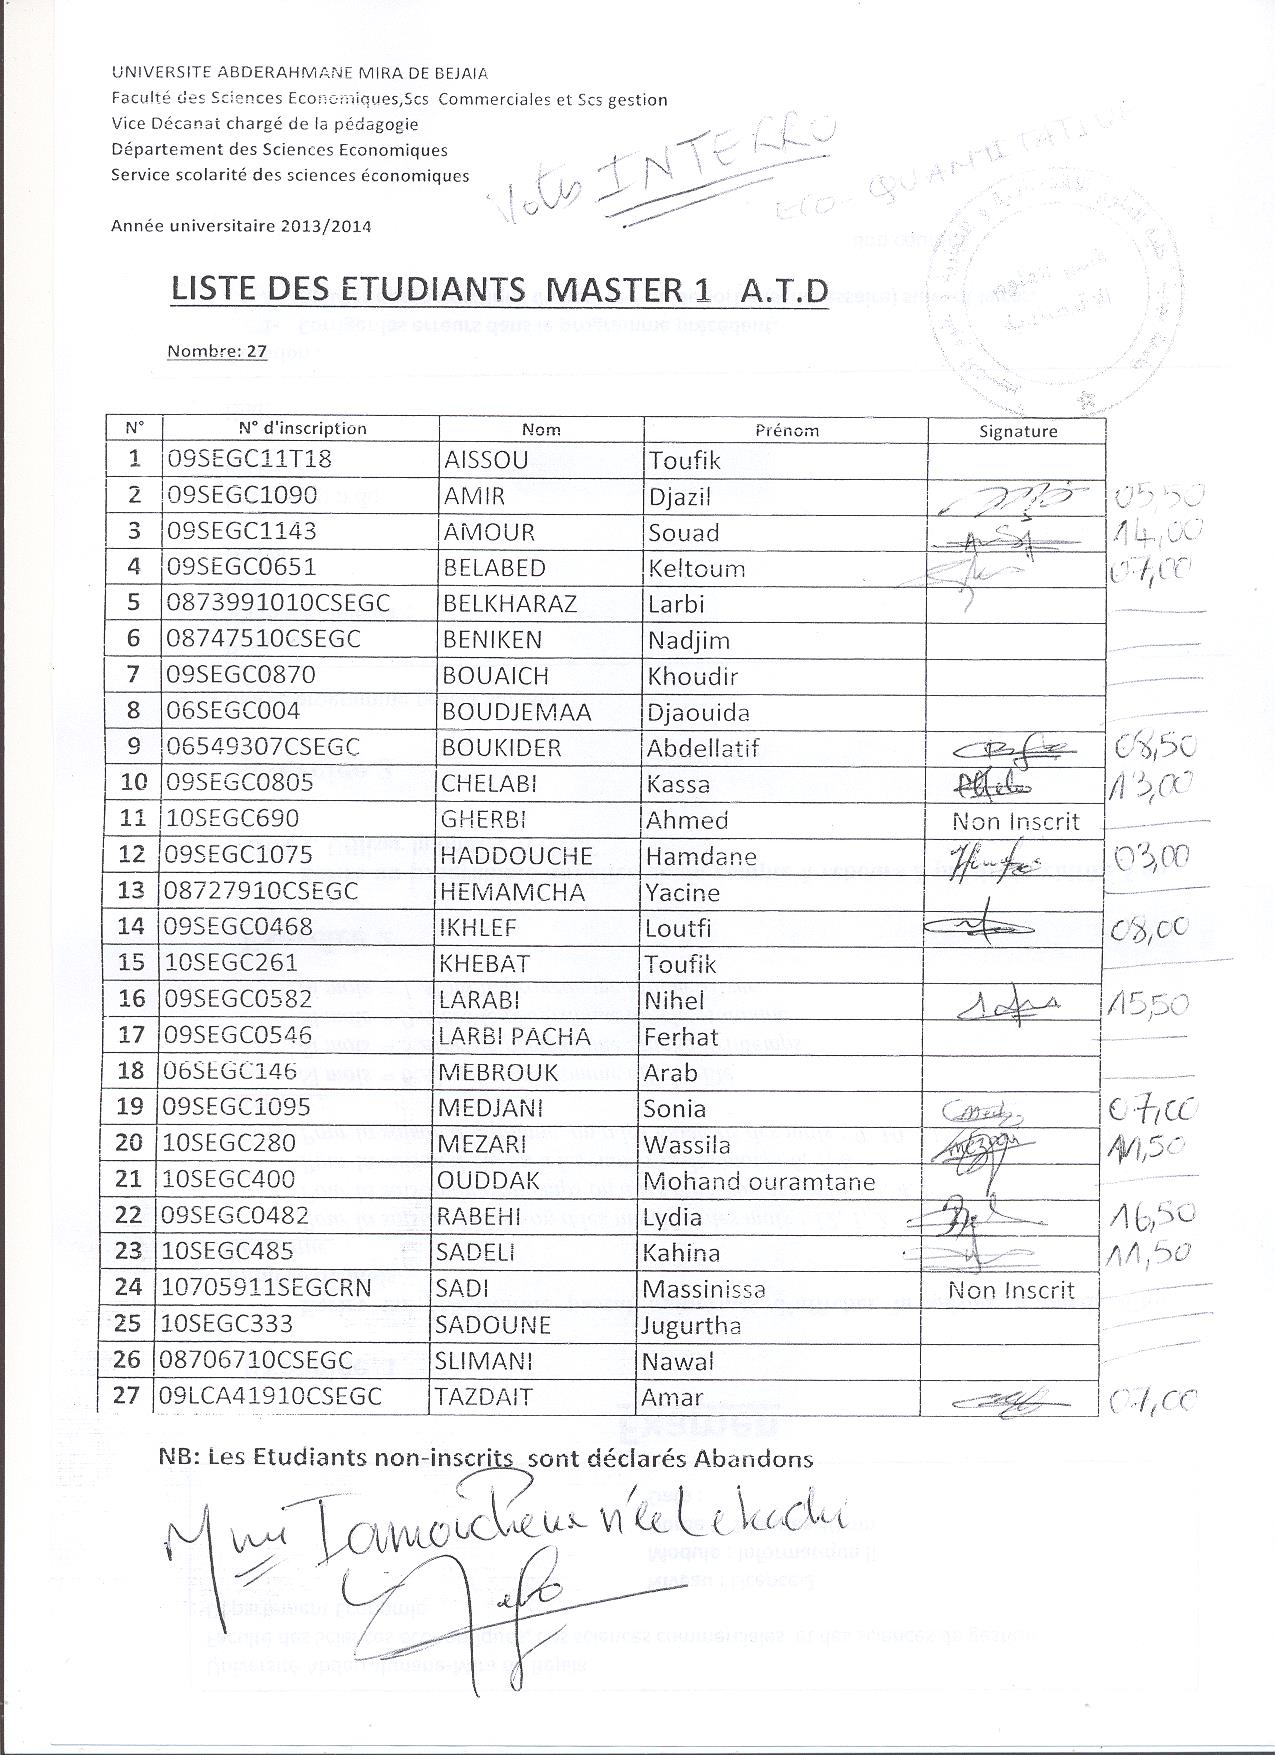 UNIVERSITE ABDERAHMANE MIRA DE BEJAIA
Faculté des Sciences Economiques,Scs Commerciales et Scs gestion
Vice Décanat chargé de la pédagogie
Département des Sciences Economiques
Service scolarité des sciences économiques
INTERRO
ECO-QUANTITATIVE
Année universitaire 2013/2014
LISTE DES ETUDIANTS MASTER 1 A.T.D
Nombre: 27
N° N° d'inscription Nom Prénom Signature
1 09SEGC11T18 AISSOU Toufik
2 09SEGC1090 AMIR Djazil 05,50
3 09SEGC1143 AMOUR Souad 14,00
4 09SEGC0651 BELABED Keltoum 07,00
5 0873991010CSEGC BELKHARAZ Larbi
6 08747510CSEGC BENIKEN Nadjim
7 09SEGC0870 BOUAICH Khoudir
8 06SEGC004 BOUDJEMAA Djaouida
9 06549307CSEGC BOUKIDER Abdellatif 08,50
10 09SEGC0805 CHELABI Kassa 13,00
11 10SEGC690 GHERBI Ahmed Non Inscrit
12 09SEGC1075 HADDOUCHE Hamdane 03,00
13 08727910CSEGC HEMAMCHA Yacine
14 09SEGC0468 IKHLEF Loutfi 08,00
15 10SEGC261 KHEBAT Toufik
16 09SEGC0582 LARABI Nihel 15,50
17 09SEGC0546 LARBI PACHA Ferhat
18 06SEGC146 MEBROUK Arab
19 09SEGC1095 MEDJANI Sonia 07,00
20 10SEGC280 MEZARI Wassila 11,50
21 10SEGC400 OUDDAK Mohand ouramtane
22 09SEGC0482 RABEHI Lydia 16,50
23 10SEGC485 SADELI Kahina 11,50
24 10705911SEGCRN SADI Massinissa Non Inscrit
25 10SEGC333 SADOUNE Jugurtha
26 08706710CSEGC SLIMANI Nawal
27 09LCA41910CSEGC TAZDAIT Amar 07,00
NB: Les Etudiants non-inscrits sont déclarés Abandons
née